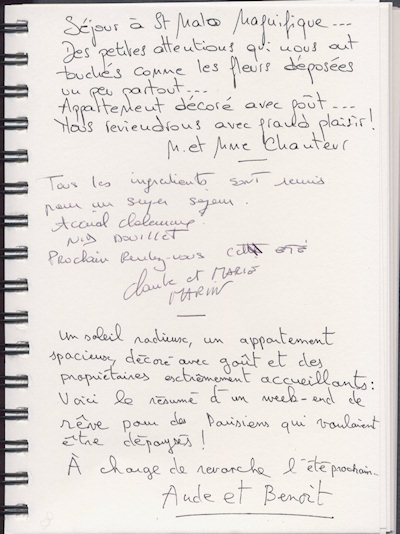 Séjour à St Malo Magnifique ...
Des petites attentions qui nous ont
touchés comme les fleurs déposées
un peu partout...
Appartement décoré avec goût ...
Nous reviendrons avec grand plaisir!
M. et Mme Chanteur
Tous les ingredients sont reunis
pour un super sejour.
Accueil chaleureux.
Nid Douillet
Prochain Rendez-vous cet été
et MARIE
MARIN
Un soleil radieux, un appartement
spacieux, décoré avec goût et des
propriétaires extrêmement accueillants:
Voici le résumé d'un week-end de
rêve pour des Parisiens qui voulaient
être dépaysés!
À charge de revanche l'été prochain.
Aude et Benoît